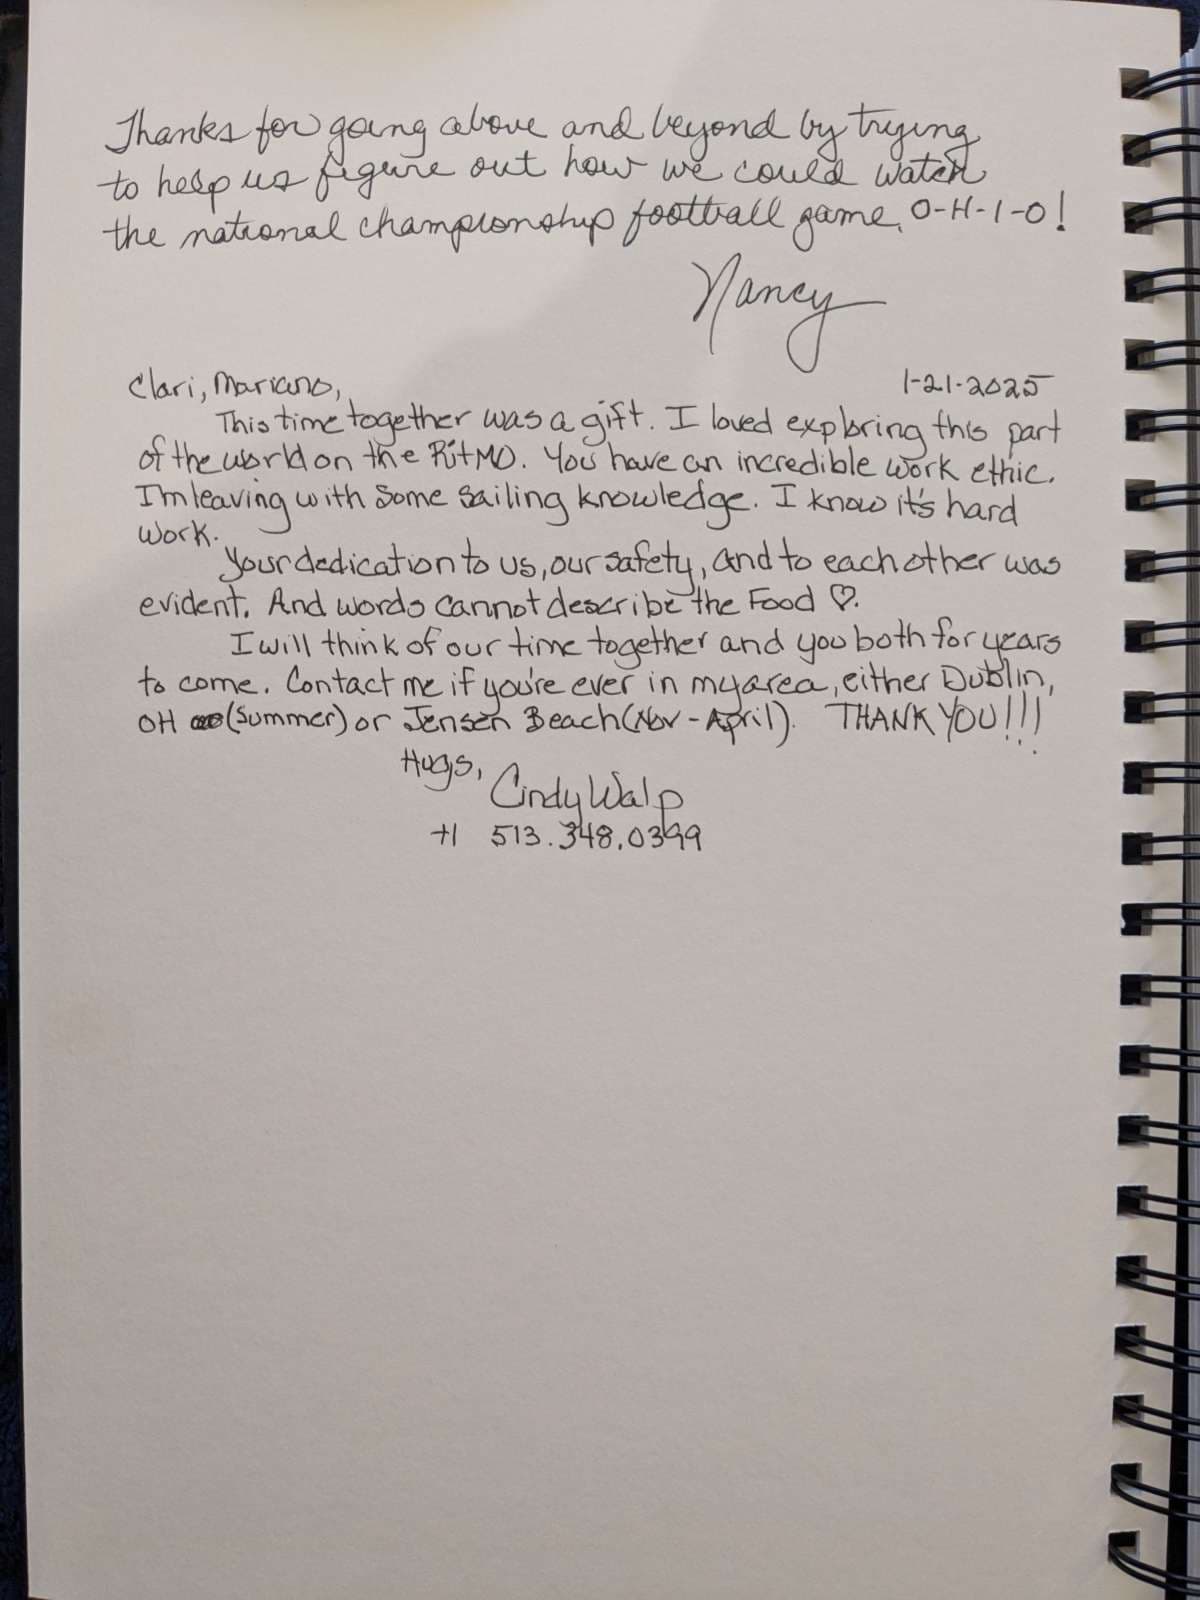 Thanks for going above and beyond by trying
to help us figure out how we could watch
the national championship football game. O-H-I-O!
Nancy
Clari, Mariano, 1-21-2025
This time together was a gift. I loved exploring this part
of the world on the RitMO. You have an incredible work ethic.
I'm leaving with some sailing knowledge. I know it's hard
work.
Your dedication to us, our safety, and to each other was
evident. And words cannot describe the Food ♡.
I will think of our time together and you both for years
to come. Contact me if you're ever in my area, either Dublin,
OH (summer) or Jensen Beach (Nov - April). THANK YOU!!!
Hugs,
Cindy Walp
+1 513.348.0399